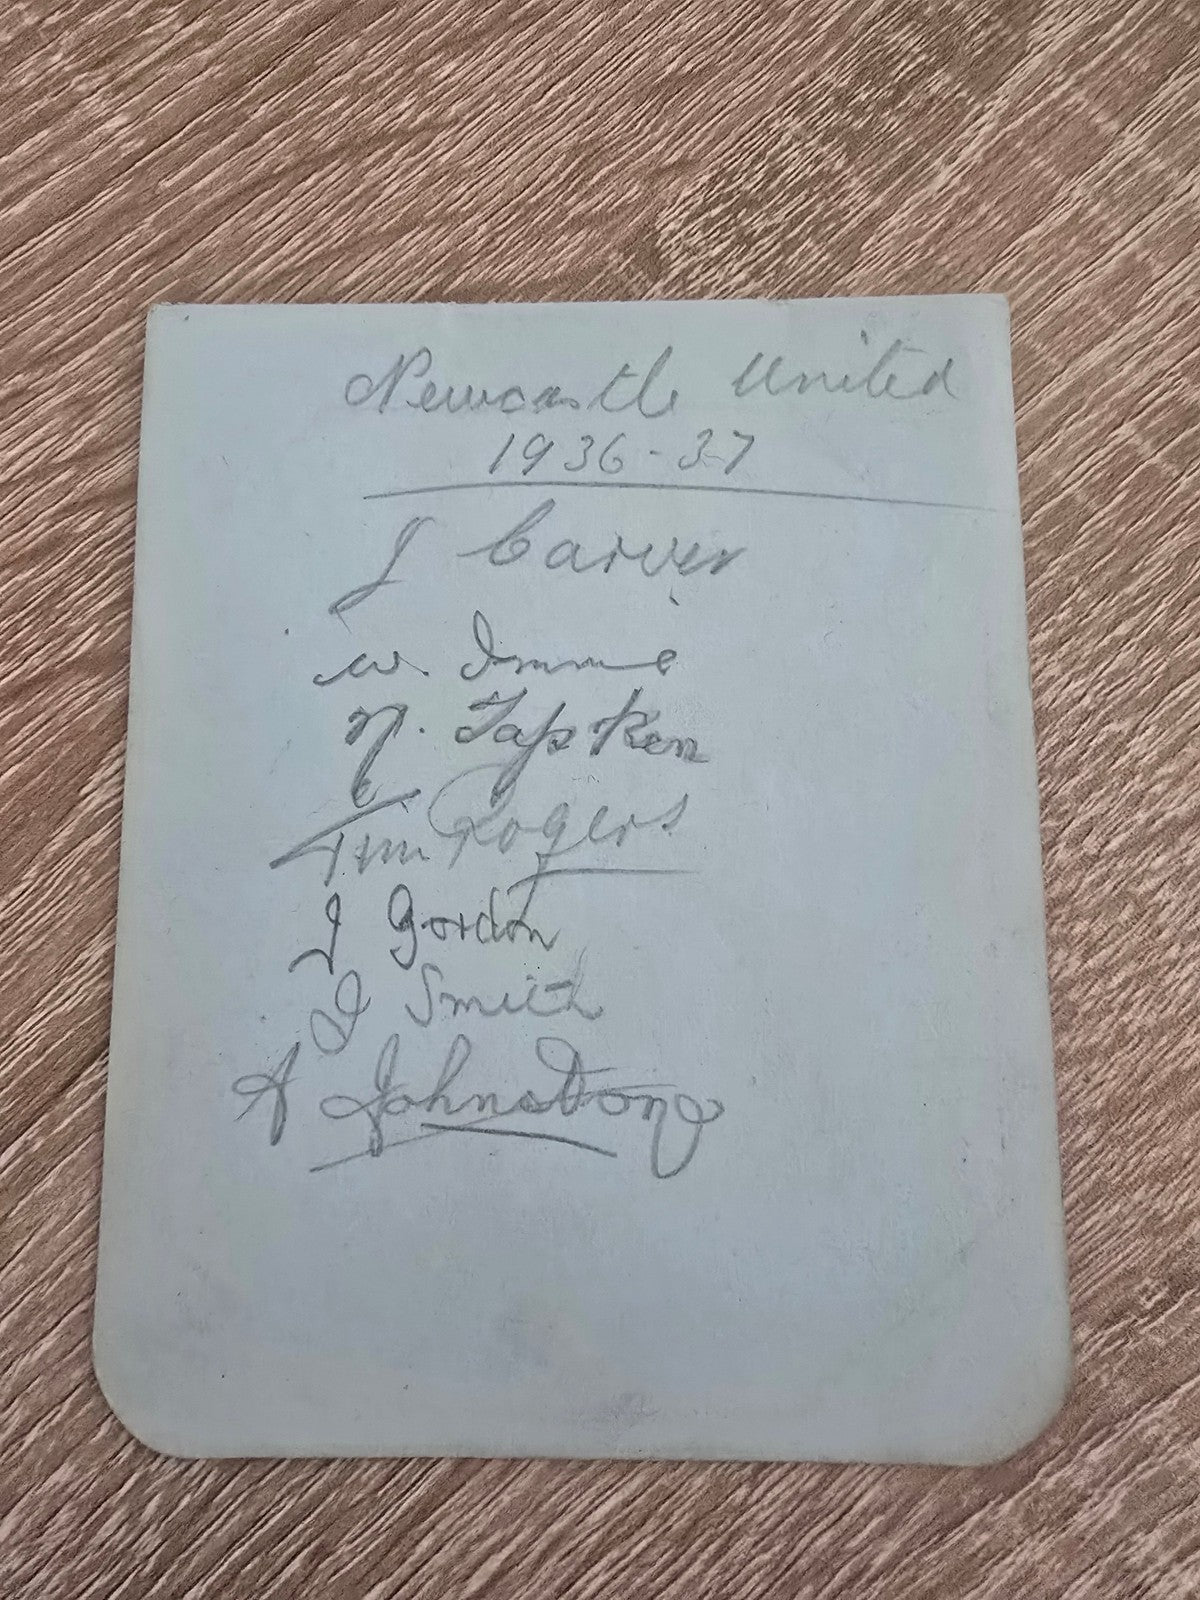 Newcastle United
1936-37
J Carver
W. Imrie
N. Tapken
Tim Rogers
J Gordon
J Smith
A Johnstone